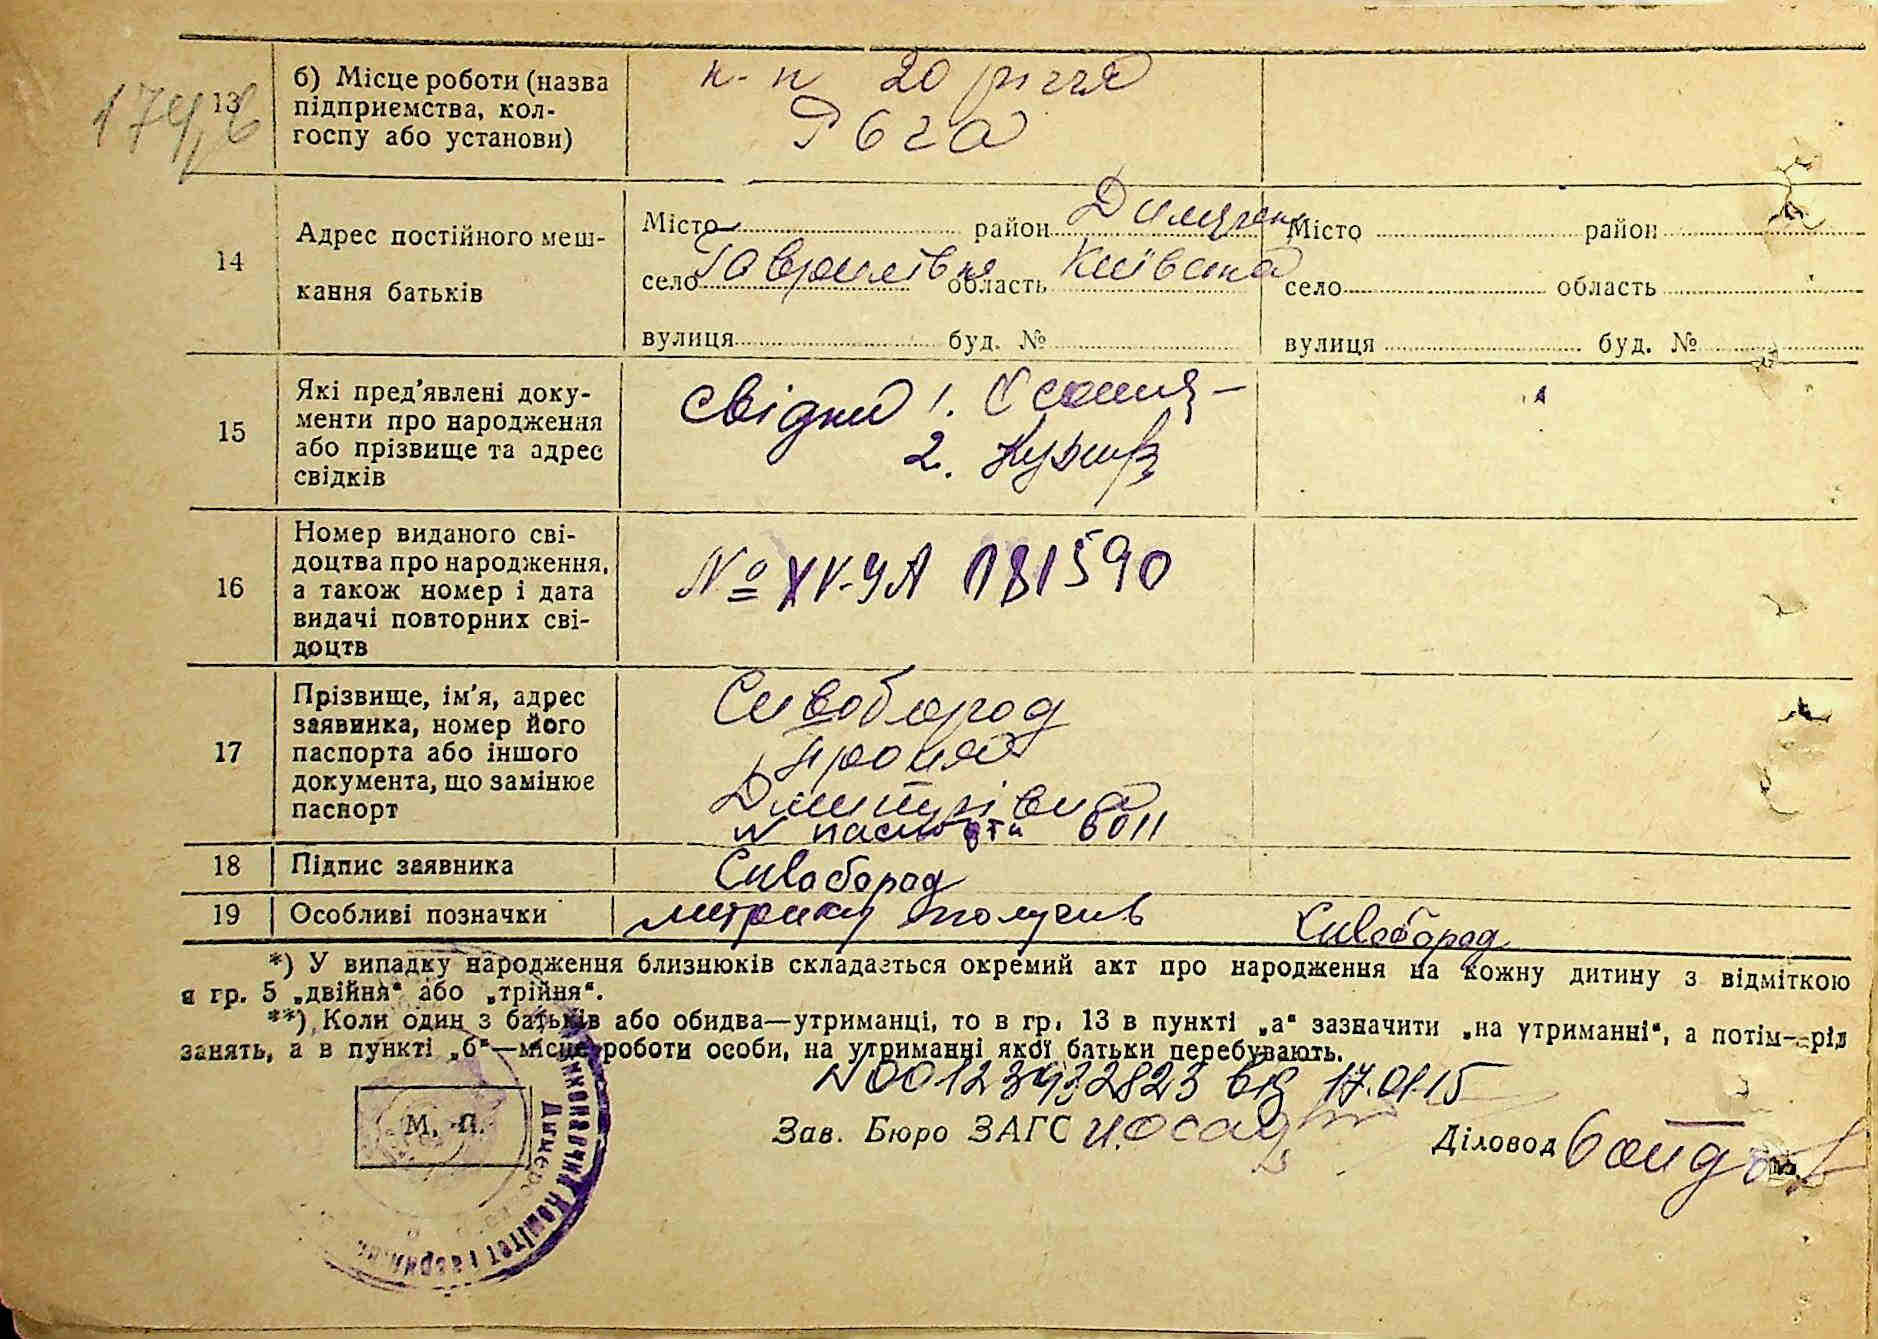 174, в
13
б) Місце роботи (назва
підприємства, кол-
госпу або установи)
к-п 20 річчя
14
Адрес постійного меш-
кання батьків
Місто район Димерськ
село Гаврилівка область Київська
вулиця буд. №
Місто район
село область
вулиця буд. №
15
Які пред'явлені доку-
менти про народження
або прізвище та адрес
свідків
свідки 1.
2.
16
Номер виданого сві-
доцтва про народження,
а також номер і дата
видачі повторних сві-
доцтв
№ XV-УА 181590
17
Прізвище, ім'я, адрес
заявника, номер його
паспорта або іншого
документа, що замінює
паспорт
Сивобород
Дмитрівна
№ паспорта 6011
18 Підпис заявника
Сивобород
19 Особливі позначки
метрику получив Сивобород
*) У випадку народження близнюків складається окремий акт про народження на кожну дитину з відміткою
в гр. 5 „двійня“ або „трійня“.
**) Коли один з батьків або обидва—утриманці, то в гр. 13 в пункті „а“ зазначити „на утриманні“, а потім—рід
занять, а в пункті „б“—місце роботи особи, на утриманні якої батьки перебувають.
N00123932823 від 17.01.15
М. П.
Зав. Бюро ЗАГС
Діловод
Виконавчий Комітет Гаврилів
Димерсько